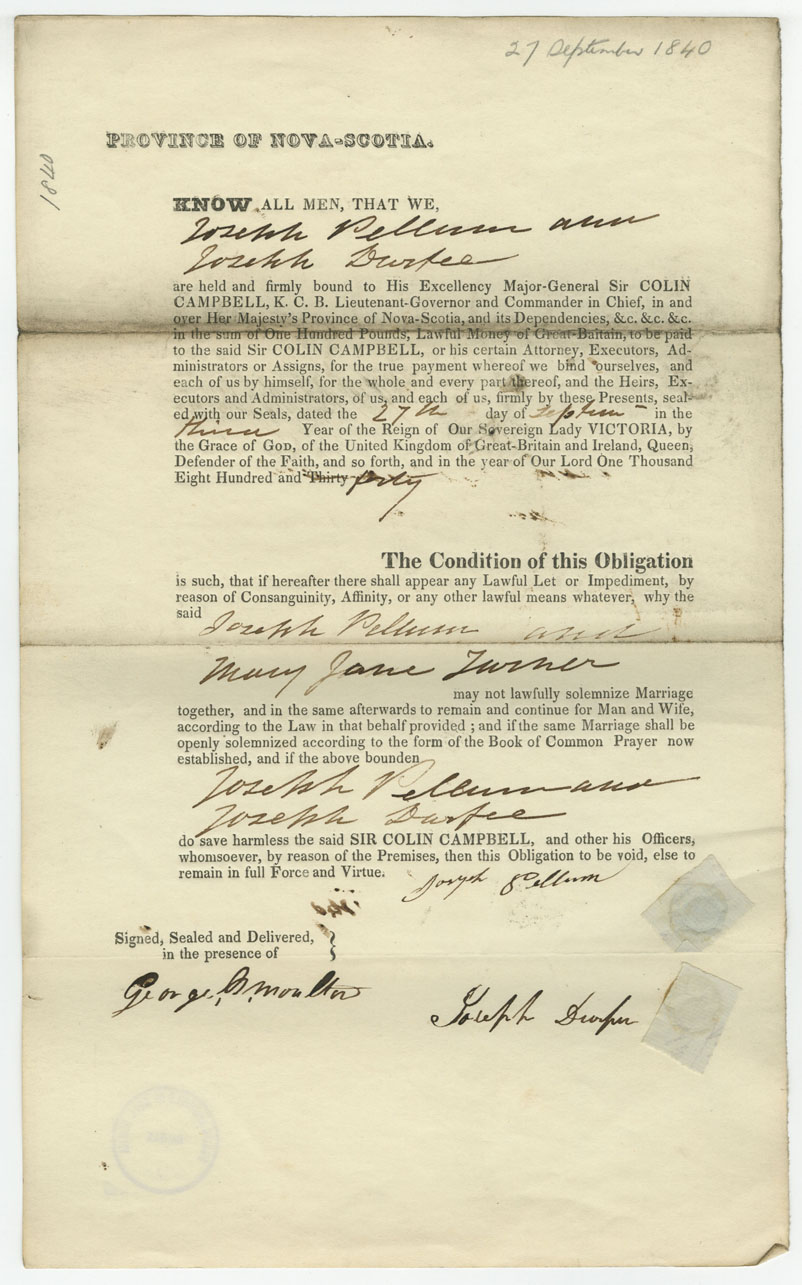 27 September 1840
1840
PROVINCE OF NOVA-SCOTIA.
KNOW ALL MEN, THAT WE,
Joseph Pellum and
Joseph Durfee
are held and firmly bound to His Excellency Major-General Sir COLIN
CAMPBELL, K. C. B. Lieutenant-Governor and Commander in Chief, in and
over Her Majesty's Province of Nova-Scotia, and its Dependencies, &c. &c. &c.
in the sum of One Hundred Pounds, Lawful Money of Great-Baitain, to be paid
to the said Sir COLIN CAMPBELL, or his certain Attorney, Executors, Ad-
ministrators or Assigns, for the true payment whereof we bind ourselves, and
each of us by himself, for the whole and every part thereof, and the Heirs, Ex-
ecutors and Administrators, of us, and each of us, firmly by these Presents, seal-
ed with our Seals, dated the 27th day of Septem in the
Year of the Reign of Our Sovereign Lady VICTORIA, by
the Grace of GOD, of the United Kingdom of Great-Britain and Ireland, Queen,
Defender of the Faith, and so forth, and in the year of Our Lord One Thousand
Eight Hundred and Thirty forty
The Condition of this Obligation
is such, that if hereafter there shall appear any Lawful Let or Impediment, by
reason of Consanguinity, Affinity, or any other lawful means whatever, why the
said Joseph Pellum and
Mary Jane Turner
may not lawfully solemnize Marriage
together, and in the same afterwards to remain and continue for Man and Wife,
according to the Law in that behalf provided ; and if the same Marriage shall be
openly solemnized according to the form of the Book of Common Prayer now
established, and if the above bounden
Joseph Pellum and
Joseph Durfee
do save harmless the said SIR COLIN CAMPBELL, and other his Officers,
whomsoever, by reason of the Premises, then this Obligation to be void, else to
remain in full Force and Virtue.
Joseph Pellum
Signed, Sealed and Delivered,
in the presence of
George B Moulton
Joseph Durfee